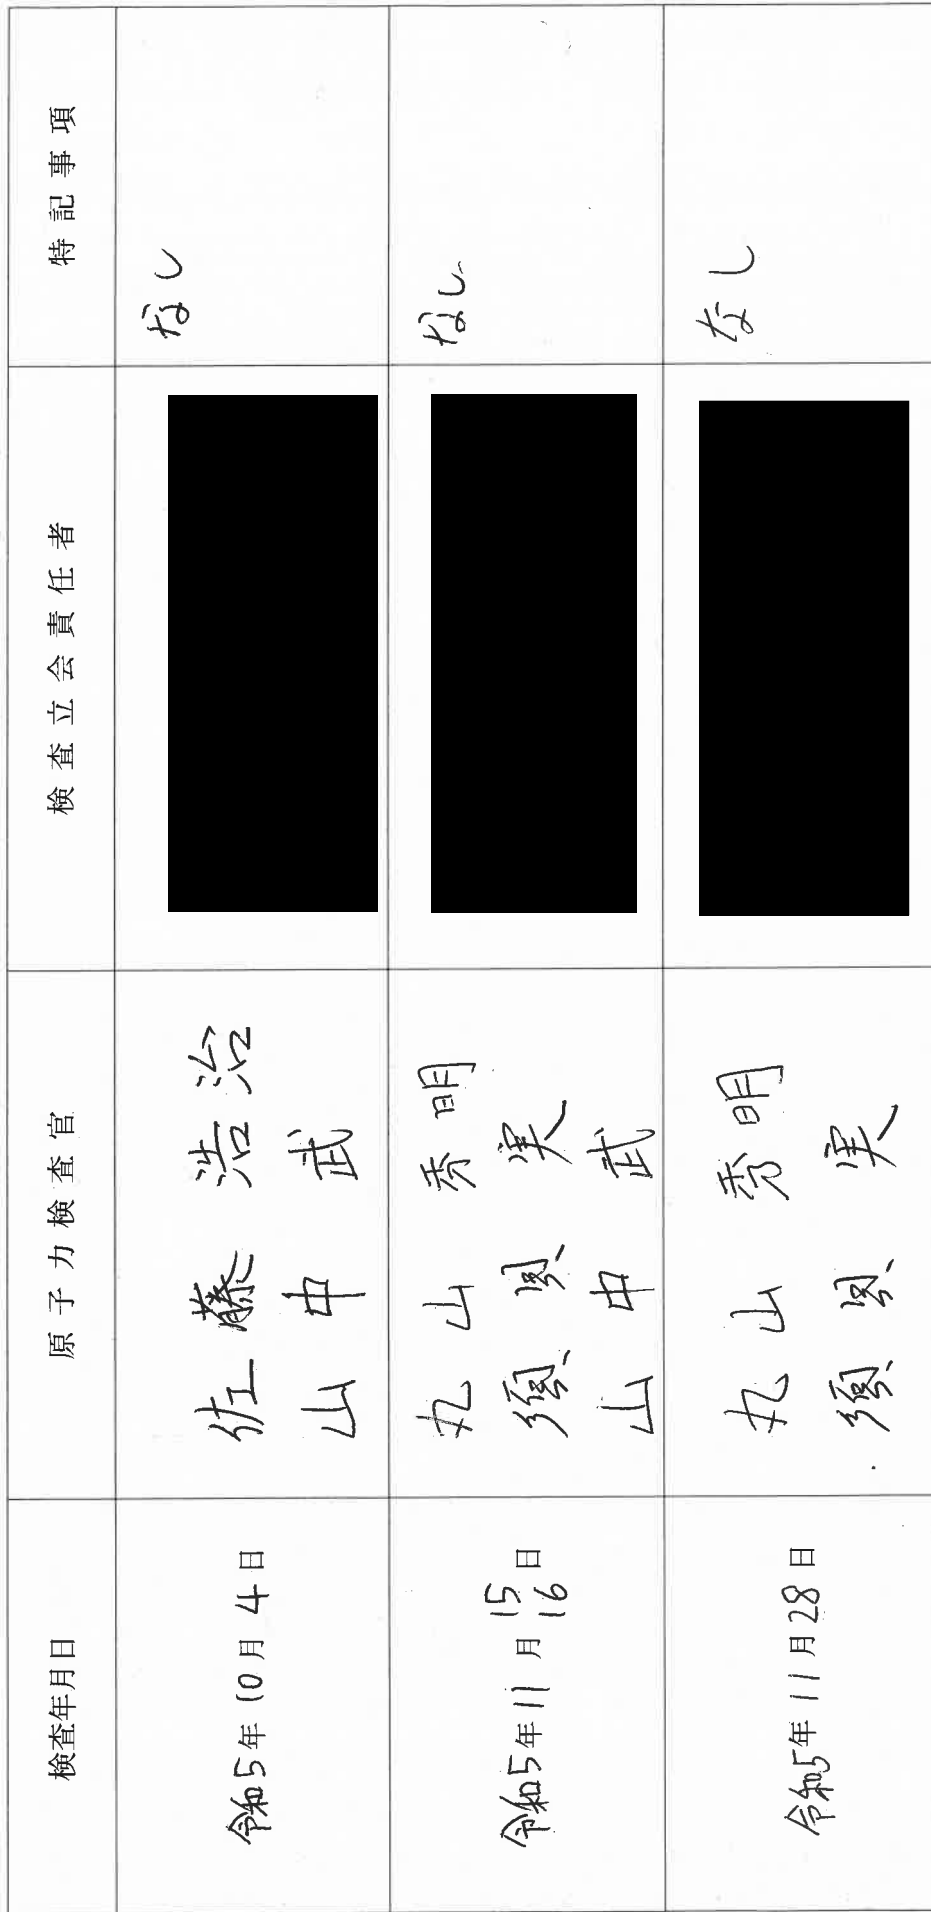 検査年月日 原子力検査官 検査立会責任者 特記事項
令和5年10月4日
佐藤 浩治
山中 武
なし
令和5年11月15 16日
丸山 秀明
須貝 実
山中 武
なし
令和5年11月28日
丸山 秀明
須貝 実
なし